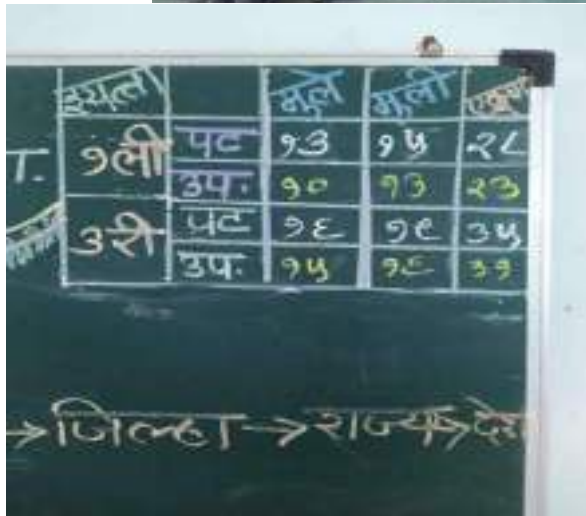 इयत्ता मुले मुली एकूण
१ली पट १३ १५ २८
उप. १० १३ २३
३री पट १६ १९ ३५
उप. १५ १६ ३१
→जिल्हा→राज्य→देश